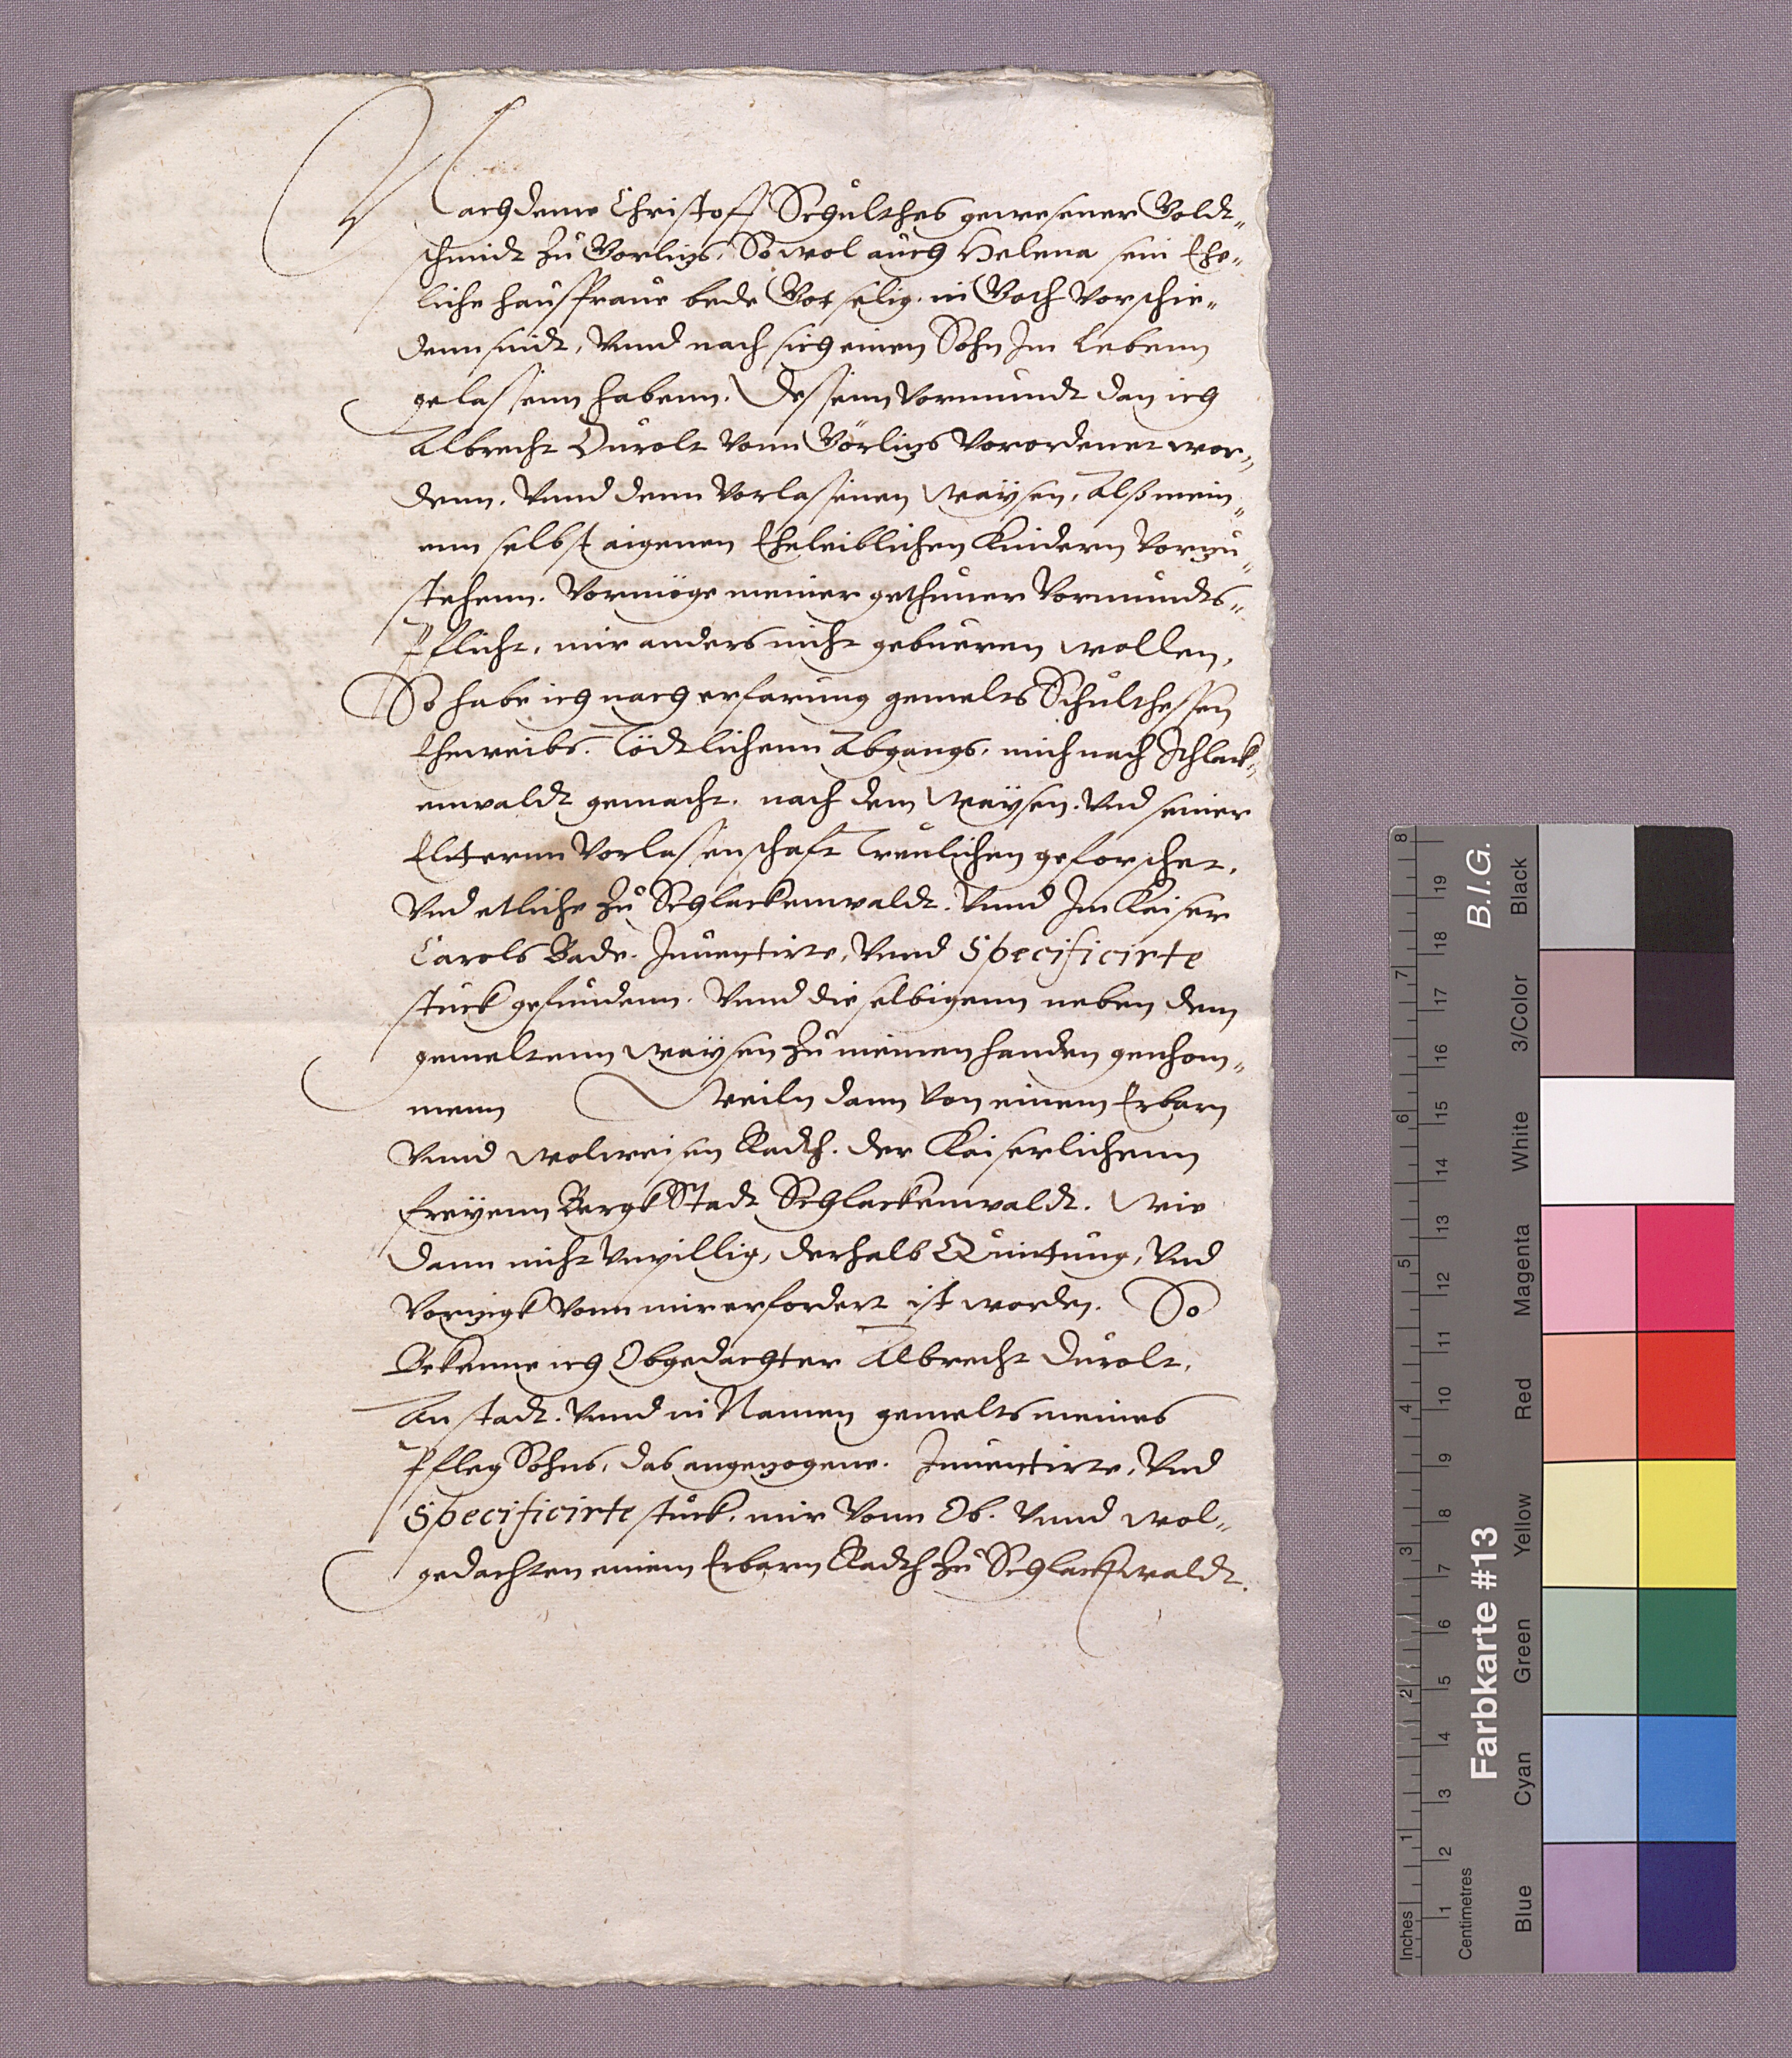 Nachdeme Christoff Schulthes gewesener Goldt„
schmidt zu Gorlitz, So wol auch Helena sein Ehe„
liche hausfraue bede Got selig. in Goth Vorschie„
denn sindt, Vnnd nach sich einen Sohn Im Lebenn
gelassenn habenn. Dessenn Vormundt dan ich
Albrecht Durolt vonn Görlitz Verordenet wor„
denn. Vnnd denn Vorlassenen waÿsen, Alß mein„
enn selbst aigenen Eheleiblichen Kindern Vorzu„
stehenn. Vormöge meiner gethuner Vormundts„
Pflicht, mir anders nicht gebueren wollen,
So habe ich nach erfarung gemelts Schulthessen
Eheweibs. Tödtlichenn Abgangs, mich nach Schlack„
enwaldt gemacht. nach dem Waÿsen. Vnd seiner
Elternn Vorlassenschaft Treulichen geforschet.
Vnd etliche zu Schlackenwaldt. Vnnd Im Kaiser
Carols Bade. Inuentirte, Vnnd Specificirte
stuck gefundenn. Vnnd die selbigenn neben dem
gemeltenn waÿsen zu meinen handen genhom„
menn Weiln dann von einem Erbarn
Vnnd wolweisen Radth. der Kaiserlichenn
freÿenn BergkStadt Schlackenwaldt. Wie
dann nicht vnwillig, derhalb Quittung, Vnd
Vorzigk vonn mir erfordert ist worden. So
Bekenne ich Obgedachter Albrecht Durolt,
An stadt. Vnnd in Namen gemelts meines
PflegSohns, das angezogene. Inuentirte, Vnd
Specificirte stuck, mir vonn Ob. Vnnd wol„
gedachten einem Erbarn Radth zu Schlackwaldt.
B.I.G.
Farbkarte #13
Inches 1 2 3 4 5 6 7 8
Centimetres 1 2 3 4 5 6 7 8 9 10 11 12 13 14 15 16 17 18 19
Blue Cyan Green Yellow Red Magenta White 3/Color Black